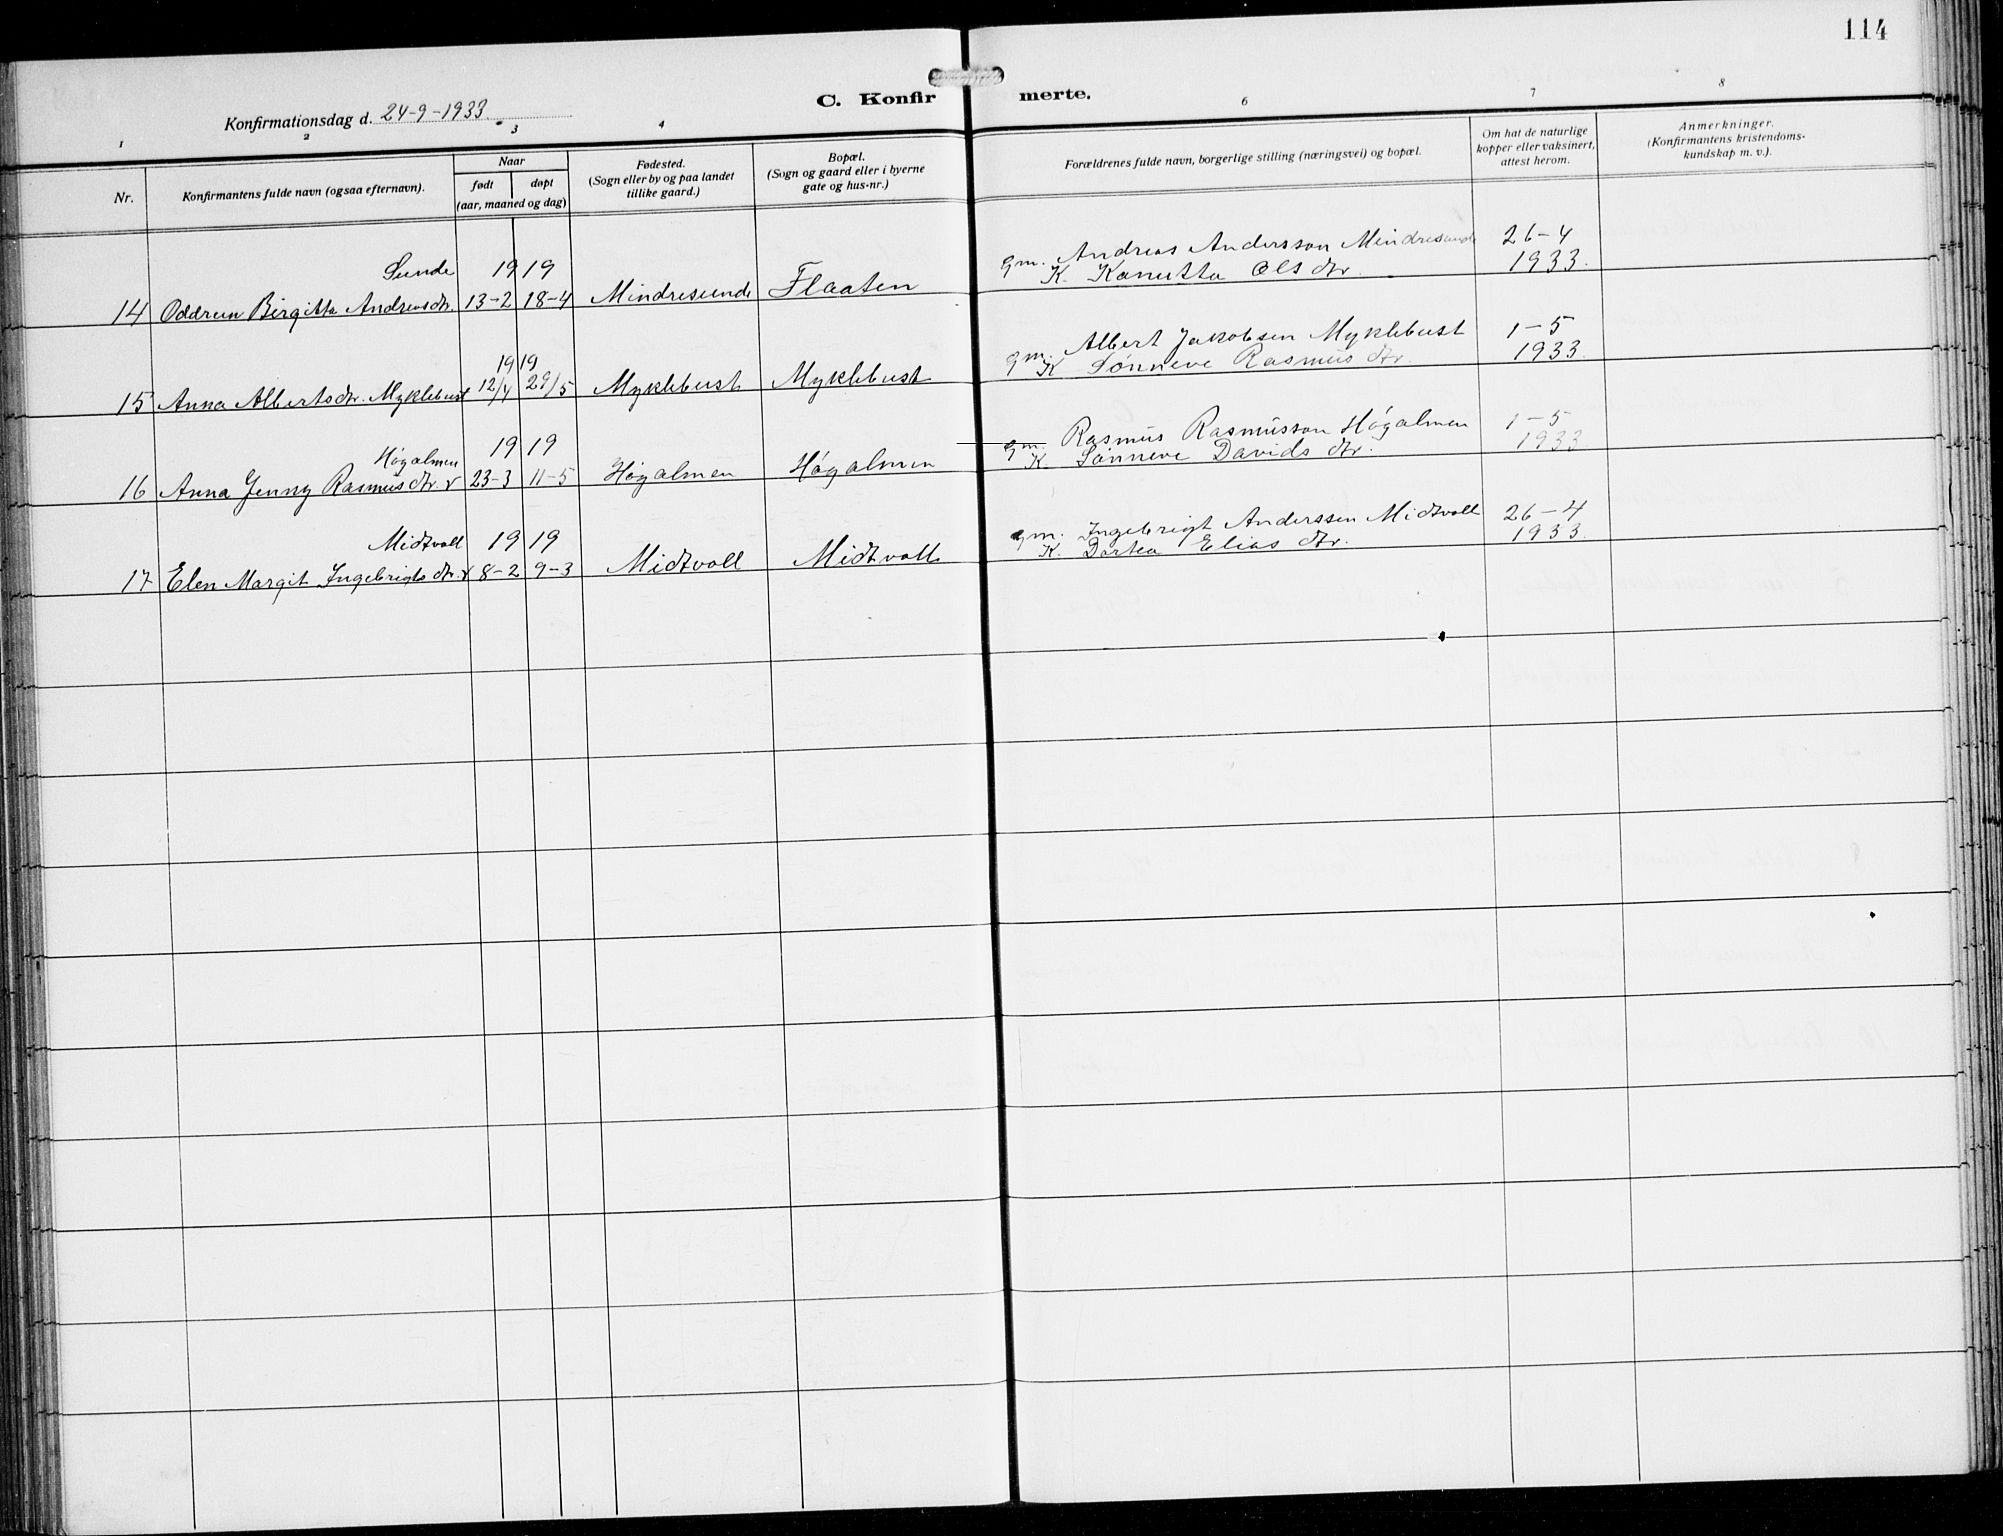 114
C. Konfirmerte.
Konfirmationsdag d. 24-9-1933
1 2 3 4 6 7 8
Nr.
Konfirmantens fulde navn (ogsaa efternavn).
Naar
født
døpt
(aar, maaned og dag)
Fødested.
(Sogn eller by og paa landet
tillike gaard.)
Bopæl.
(Sogn og gaard eller i byerne
gate og hus-nr.)
Forældrenes fulde navn, borgerlige stilling (næringsvei) og bopæl.
Om hat de naturlige
kopper eller vaksinert,
attest herom.
Anmerkninger.
(Konfirmantens kristendoms-
kundskap m. v.).
Sunde 19 19 Gm. Andreas Andersson Mindresunde 26-4
14 Oddrun Birgitta Andreasdtr. 13-2 18-4 Mindresunde Flaaten K. Kanutta Ols dtr. 1933.
19 19 Gm. Albert Jakobsen Myklebust 1-5
15 Anna Albertsdtr. Myklebust 12/4 29/5 Myklebust Myklebust K Sønneve Rasmus dtr. 1933
Høgalmen 19 19 Gm. Rasmus Rasmusson Høgalmen 1-5
16 Anna Jenny Rasmusdtr. 23-3 11-5 Høgalmen Høgalmen K. Sønneve Davids dtr. 1933
Midtvoll 19 19 Gm. Ingebrigt Anderssen Midtvoll 26-4
17 Elen Margit Ingebrigts dtr. 8-2 9-3 Midtvoll Midtvoll K. Dortea Elias dtr. 1933.